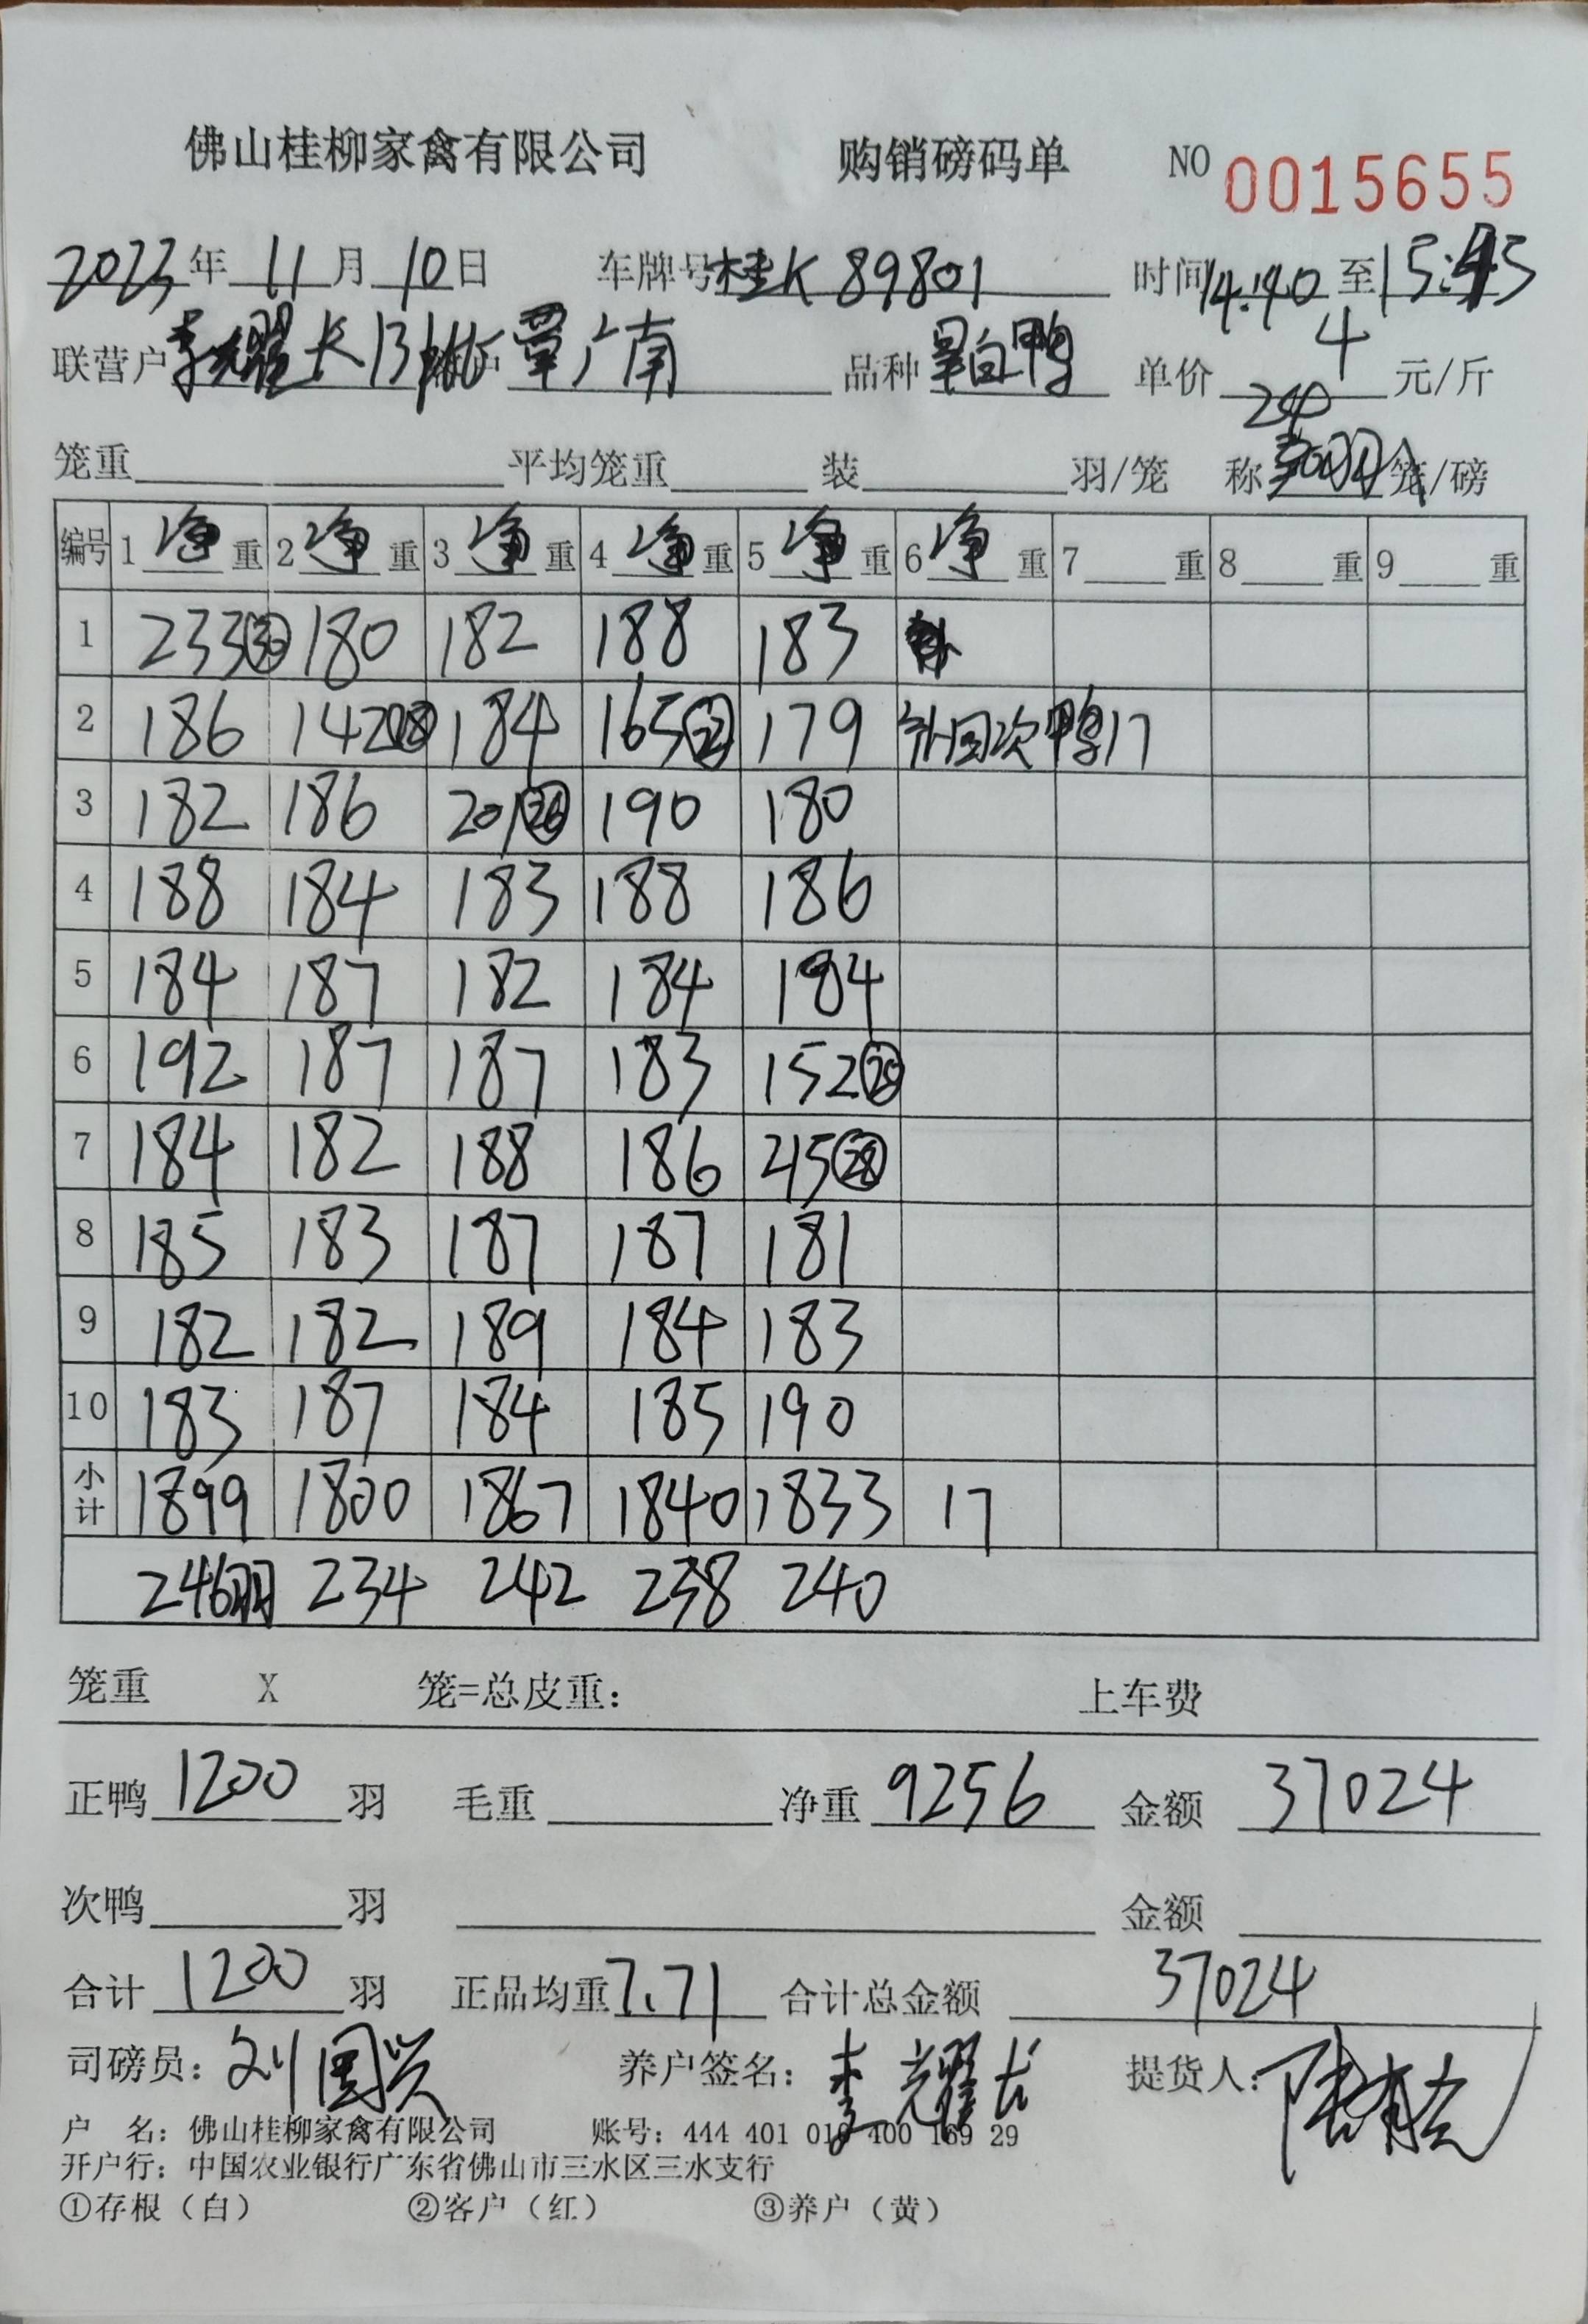 佛山桂柳家禽有限公司 购销磅码单 NO 0015655
2023年 11月 10日 车牌号 桂K 89801 时间 14:40 至 15:45
联营户 李耀长 覃广南 品种 白鸭 单价 4 元/斤
240
笼重 平均笼重 装 羽/笼 称 笼/磅
编号 1 净 重 2 净 重 3 净 重 4 净 重 5 净 重 6 净 重 7 重 8 重 9 重
1 233 30 180 182 188 183
2 186 142 18 184 165 22 179 补回次鸭17
3 182 186 201 26 190 180
4 188 184 183 188 186
5 184 187 182 184 184
6 192 187 187 183 152 20
7 184 182 188 186 215 28
8 185 183 187 187 181
9 182 182 189 184 183
10 183 187 184 185 190
小计 1899 1800 1867 1840 1833 17
246羽 234 242 238 240
笼重 X 笼=总皮重: 上车费
正鸭 1200 羽 毛重 净重 9256 金额 37024
次鸭 羽 金额
合计 1200 羽 正品均重 7.71 合计总金额 37024
司磅员: 刘国兴 养户签名: 李耀长 提货人:
户 名: 佛山桂柳家禽有限公司 账号: 444 401 010 400 169 29
开户行: 中国农业银行广东省佛山市三水区三水支行
①存根（白） ②客户（红） ③养户（黄）